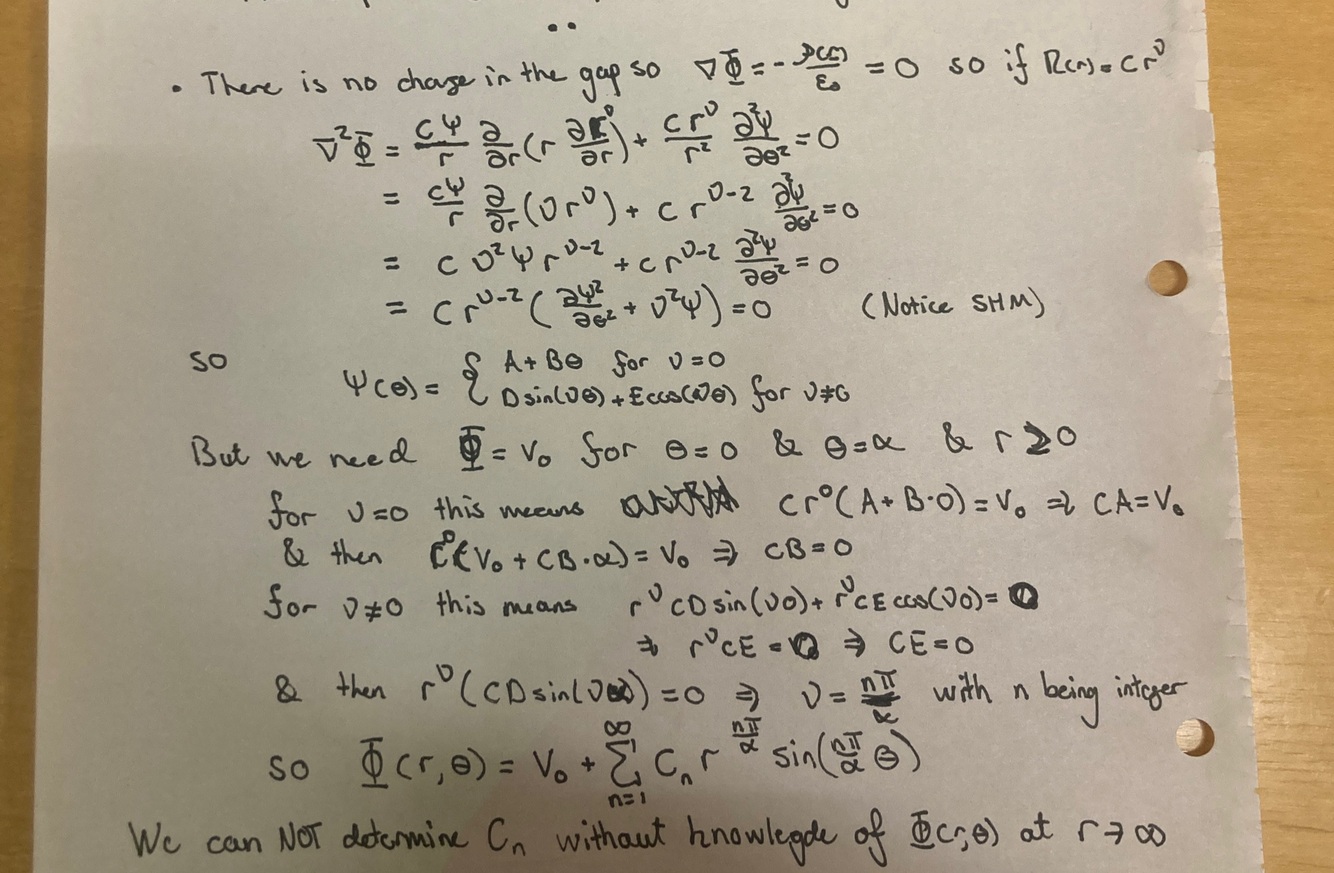 • There is no charge in the gap so ∇Φ = -ρ(r)/ε₀ = 0 so if R(r) = C r^ν
∇²Φ = CΨ/r ∂/∂r (r ∂r^ν/∂r) + C r^ν/r² ∂²Ψ/∂θ² = 0
= CΨ/r ∂/∂r (ν r^ν) + C r^(ν-2) ∂²Ψ/∂θ² = 0
= C ν² Ψ r^(ν-2) + C r^(ν-2) ∂²Ψ/∂θ² = 0
= C r^(ν-2) (∂Ψ²/∂θ² + ν²Ψ) = 0 (Notice SHM)
so Ψ(θ) = { A + Bθ for ν=0
D sin(νθ) + E cos(νθ) for ν≠0
But we need Φ = V₀ for θ=0 & θ=α & r ≥ 0
for ν=0 this means C r⁰ (A + B·0) = V₀ ⇒ CA = V₀
& then r⁰(V₀ + CB·α) = V₀ ⇒ CB = 0
for ν≠0 this means r^ν CD sin(ν0) + r^ν CE cos(ν0) = 0
⇒ r^ν CE = 0 ⇒ CE = 0
& then r^ν (CD sin(να)) = 0 ⇒ ν = nπ/α with n being integer
so Φ(r,θ) = V₀ + Σ_{n=1}^{∞} C_n r^(nπ/α) sin(nπ/α θ)
We can NOT determine C_n without knowlegde of Φ(r,θ) at r → ∞